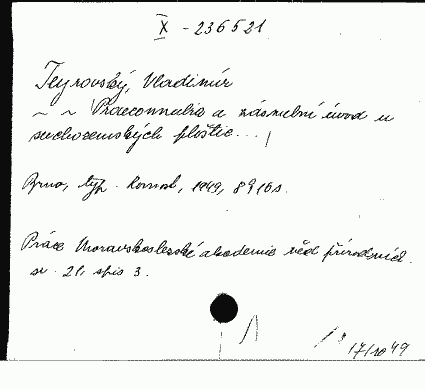 X - 236521
Teyrovský, Vladimír
~ ~ Praeconnubia a zásnubní úvod u
suchozemských ploštic...
Brno, typ. , 1949, 8° 16 s.
Práce Moravskoslezské akademie věd přírodních.
sv. 21, spis 3.
49